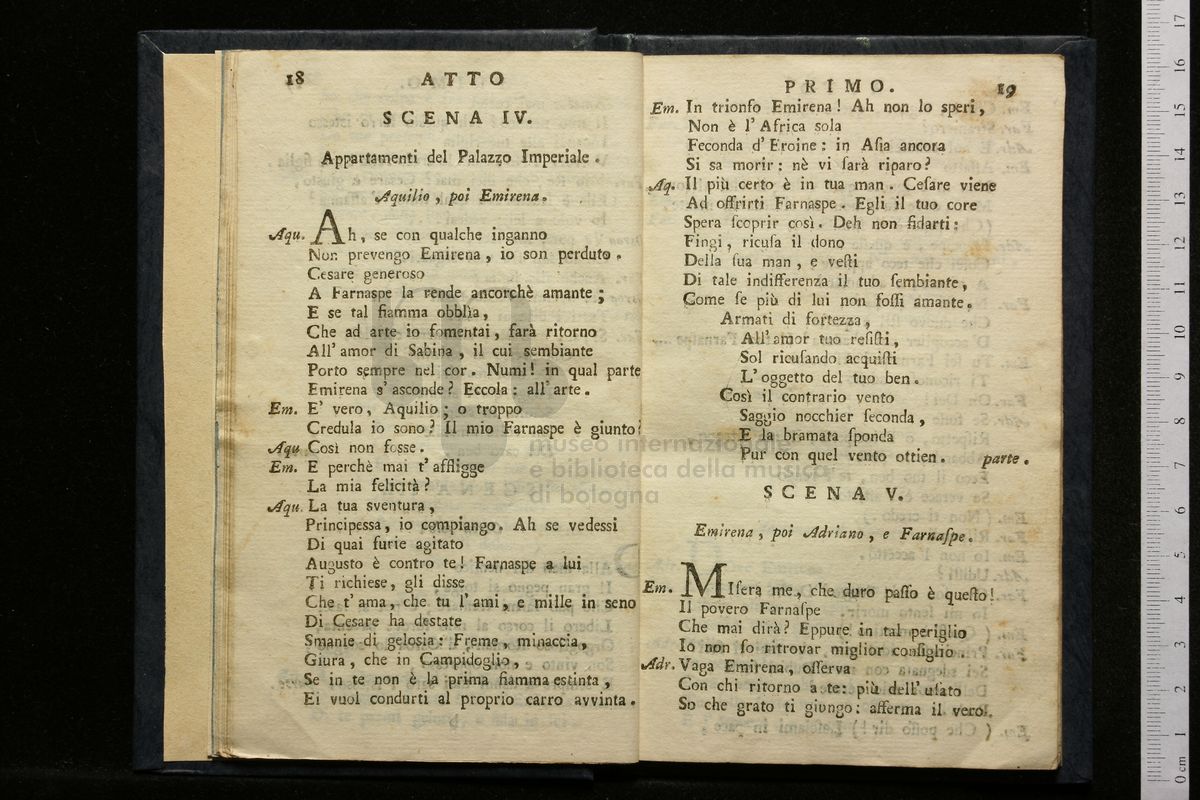 18 ATTO
SCENA IV.
Appartamenti del Palazzo Imperiale.
Aquilio, poi Emirena.
Aqu. Ah, se con qualche inganno
Non prevengo Emirena, io son perduto.
Cesare generoso
A Farnaspe la rende ancorchè amante;
E se tal fiamma obblìa,
Che ad arte io fomentai, farà ritorno
All' amor di Sabina, il cui sembiante
Porto sempre nel cor. Numi! in qual parte
Emirena s' asconde? Eccola: all' arte.
Em. E' vero, Aquilio; o troppo
Credula io sono? Il mio Farnaspe è giunto?
Aqu. Così non fosse.
Em. E perchè mai t' affligge
La mia felicità?
Aqu. La tua sventura,
Principessa, io compiango. Ah se vedessi
Di quai furie agitato
Augusto è contro te! Farnaspe a lui
Ti richiese, gli disse
Che t' ama, che tu l' ami, e mille in seno
Di Cesare ha destate
Smanie di gelosia: Freme, minaccia,
Giura, che in Campidoglio,
Se in te non è la prima fiamma estinta,
Ei vuol condurti al proprio carro avvinta.
PRIMO. 19
Em. In trionfo Emirena! Ah non lo speri,
Non è l' Africa sola
Feconda d' Eroine: in Aſia ancora
Si sa morir: nè vi ſarà riparo?
Aq. Il più certo è in tua man. Ceſare viene
Ad offrirti Farnaspe. Egli il tuo core
Spera ſcoprir così. Deh non fidarti:
Fingi, ricuſa il dono
Della ſua man, e veſti
Di tale indifferenza il tuo ſembiante,
Come ſe più di lui non foſſi amante.
Armati di fortezza,
All' amor tuo reſiſti,
Sol ricuſando acquiſti
L' oggetto del tuo ben.
Così il contrario vento
Saggio nocchier ſeconda,
E la bramata ſponda
Pur con quel vento ottien. parte.
SCENA V.
Emirena, poi Adriano, e Farnaſpe.
Em. MIſera me, che duro paſſo è queſto!
Il povero Farnaſpe
Che mai dirà? Eppure in tal periglio
Io non ſo ritrovar miglior conſiglio.
Adr. Vaga Emirena, oſſerva
Con chi ritorno a te: più dell' uſato
So che grato ti giungo: afferma il vero.
museo internazionale
e biblioteca della musica
di bologna
0 cm 1 2 3 4 5 6 7 8 9 10 11 12 13 14 15 16 17